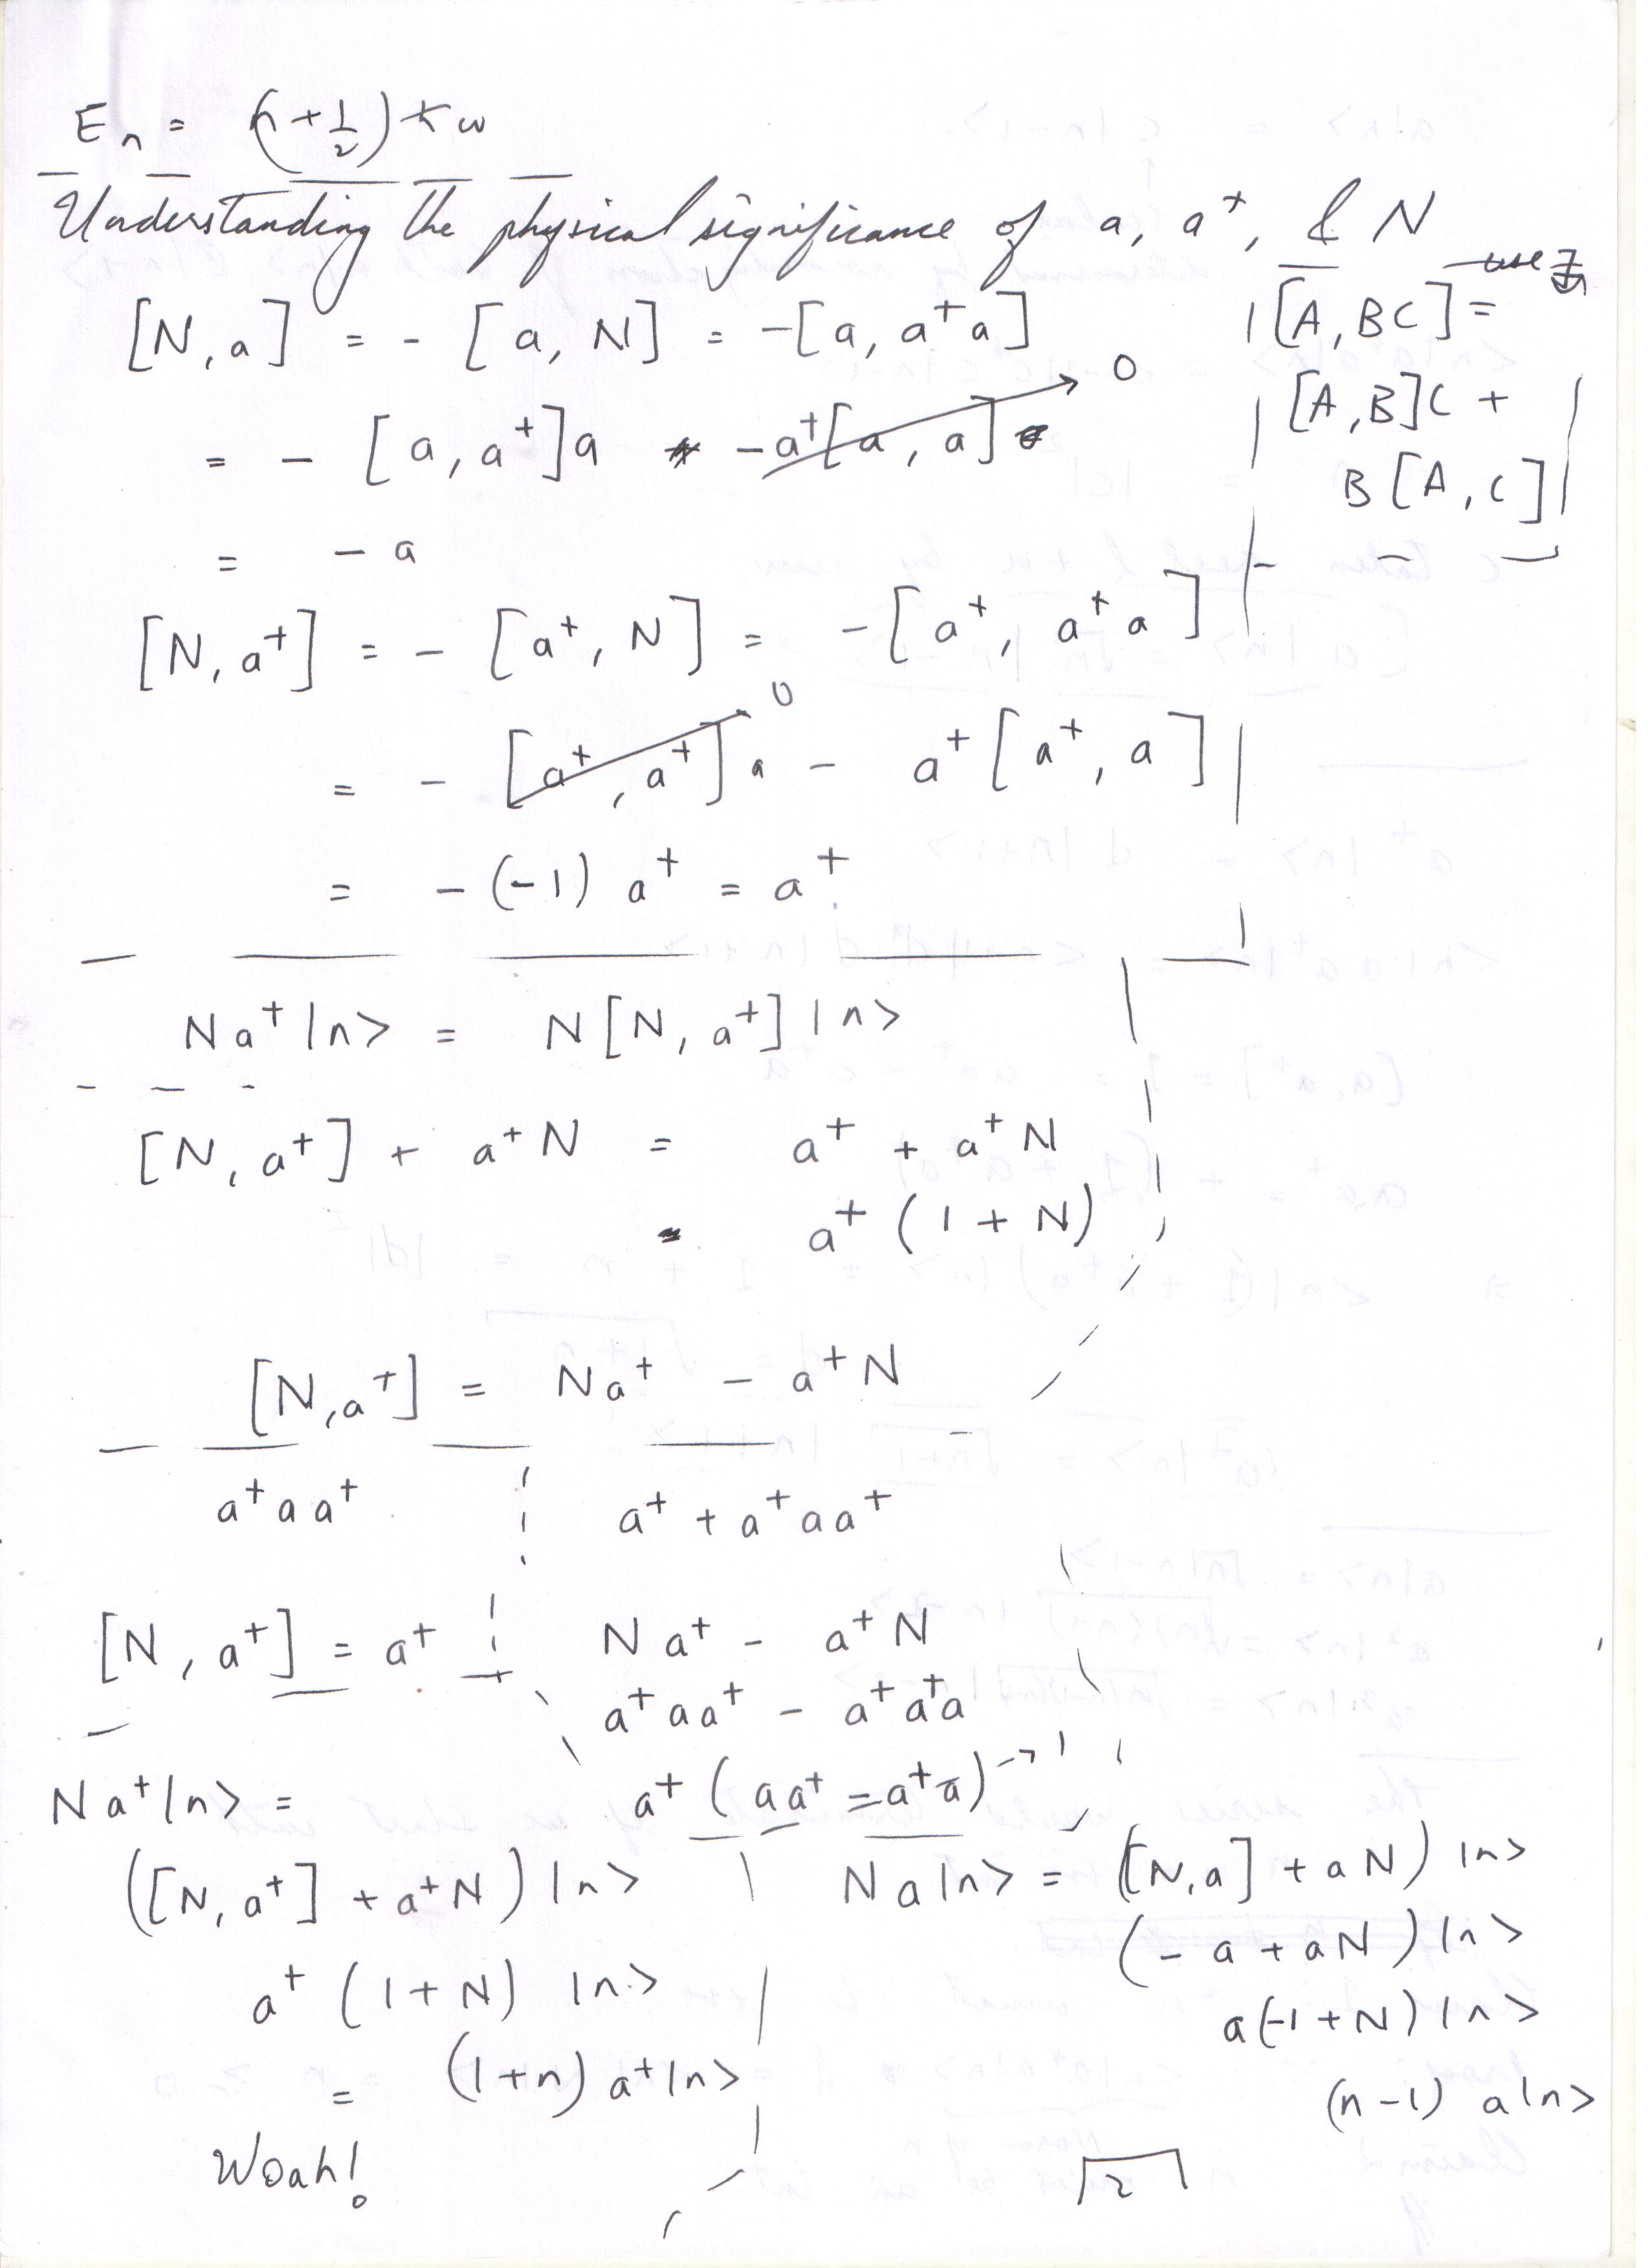 Eₙ = (n + 1/2) ħω
Understanding the physical significance of a, a⁺, & N
[N, a] = - [a, N] = -[a, a⁺a]
use
[A, BC] =
[A, B]C +
B[A, C]
= - [a, a⁺]a - a⁺[a, a] → 0
= - a
[N, a⁺] = - [a⁺, N] = -[a⁺, a⁺a]
= - [a⁺, a⁺]a - a⁺[a⁺, a]
0
= - (-1) a⁺ = a⁺
Na⁺|n> = N[N, a⁺]|n>
[N, a⁺] + a⁺N = a⁺ + a⁺N
= a⁺(1 + N)
[N, a⁺] = Na⁺ - a⁺N
a⁺aa⁺
a⁺ + a⁺aa⁺
[N, a⁺] = a⁺
Na⁺ - a⁺N
a⁺aa⁺ - a⁺a⁺a
a⁺(aa⁺ - a⁺a) → 1
Na⁺|n> =
([N, a⁺] + a⁺N)|n>
a⁺(1+N)|n>
= (1+n) a⁺|n>
Woah!
Na|n> = ([N, a] + aN)|n>
(-a + aN)|n>
a(-1+N)|n>
(n-1) a|n>
2